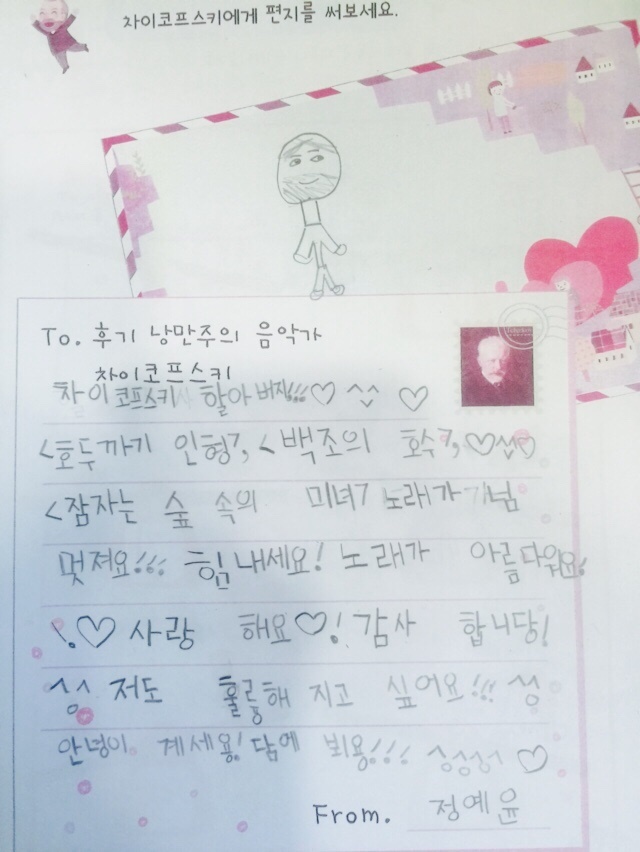 차이코프스키에게 편지를 써보세요.
To. 후기 낭만주의 음악가
차이코프스키
차이코프스키 할아버지!!!♡ ^^ ♡
<호두까기 인형>, <백조의 호수>, ♡^^♡
<잠자는 숲 속의 미녀> 노래가 기념
멋져요!!! 힘내세요! 노래가 아름다워요!
!♡ 사랑 해요♡! 감사 합니당!
저도 훌륭해 지고 싶어요!!!
안녕이 계세용! 담에 뵈용!!! ♡
From. 정예윤